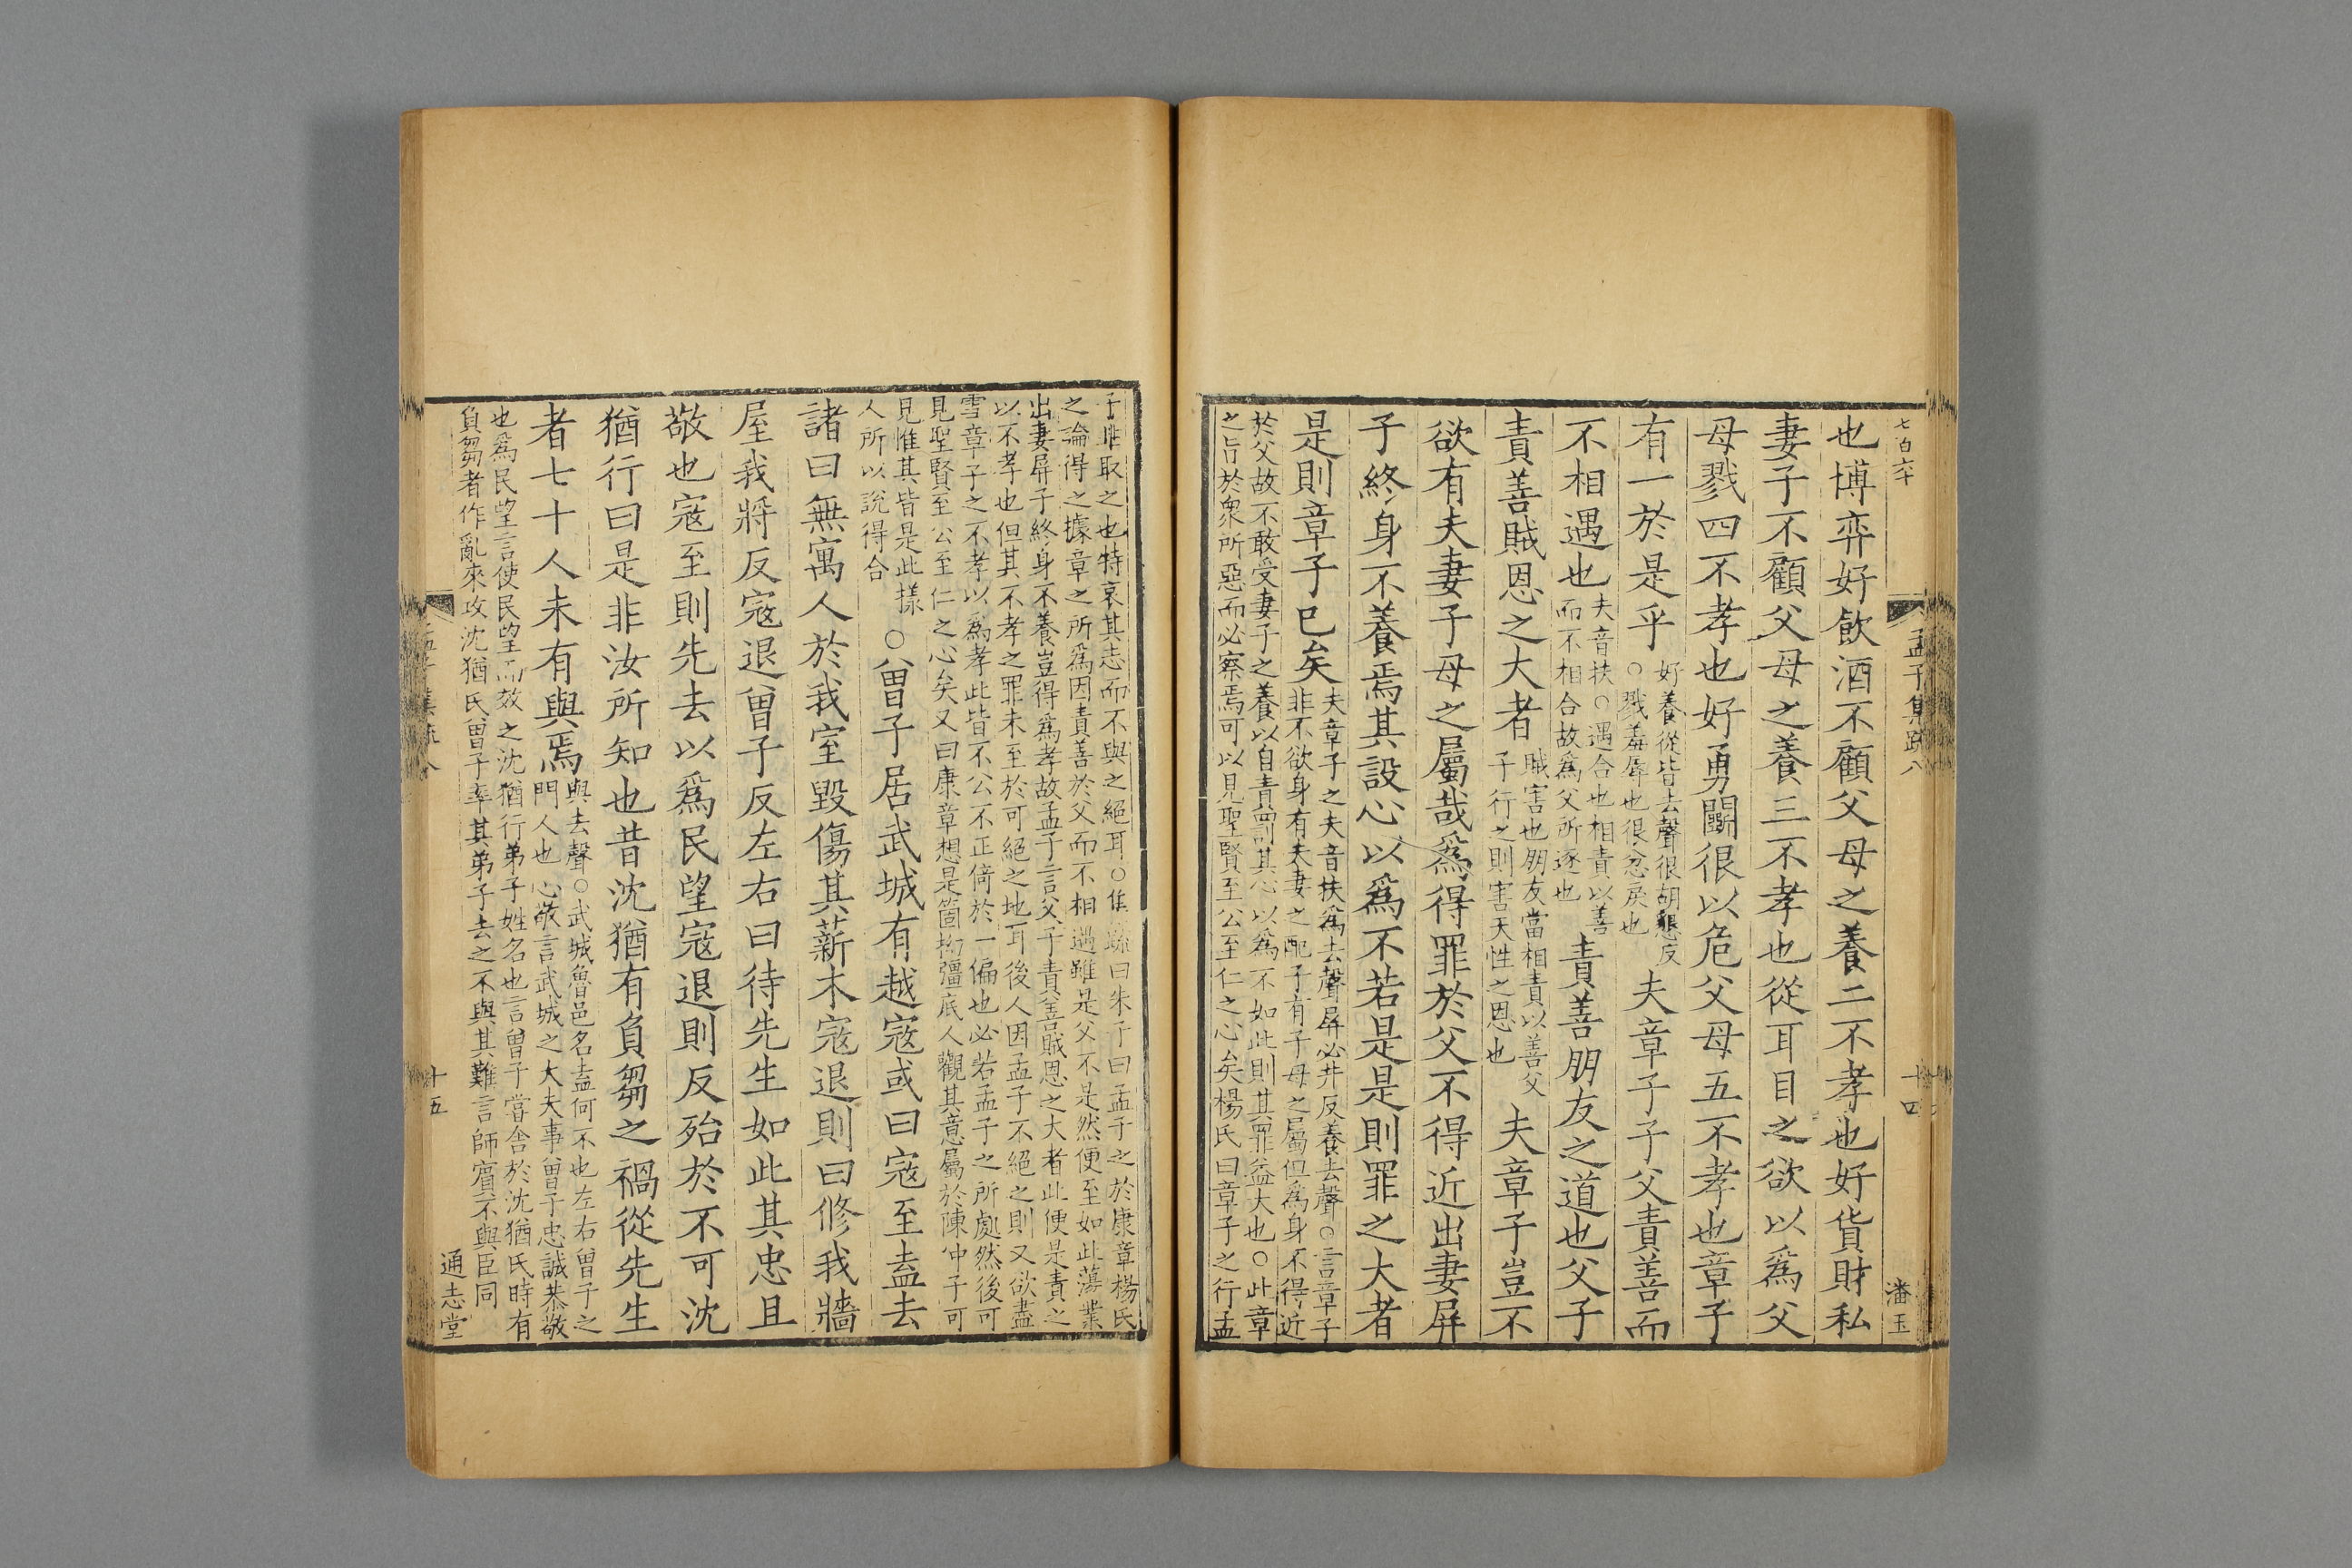 七百六十
孟子集疏八
十四
潘玉
也博弈好飲酒不顧父母之養二不孝也好貨財私
妻子不顧父母之養三不孝也從耳目之欲以為父
母戮四不孝也好勇鬭很以危父母五不孝也章子
有一於是乎
好養從皆去聲很胡懇反
○戮羞辱也很忿戾也
夫章子子父責善而
不相遇也
夫音扶○遇合也相責以善
而不相合故為父所逐也
責善朋友之道也父子
責善賊恩之大者
賊害也朋友當相責以善父
子行之則害天性之恩也
夫章子豈不
欲有夫妻子母之屬哉爲得罪於父不得近出妻屏
子終身不養焉其設心以爲不若是是則罪之大者
是則章子已矣
夫章子之夫音扶爲去聲屏必井反養去聲○言章子
非不欲身有夫妻之配子有子母之屬但爲身不得近
於父故不敢受妻子之養以自責罰其心以爲不如此則其罪益大也○此章
之旨於衆所惡而必察焉可以見聖賢至公至仁之心矣楊氏曰章子之行孟
子非取之也特哀其志而不與之絕耳○集疏曰朱子曰孟子之於康章楊氏
之論得之據章之所爲因責善於父而不相遇雖是父不是然便至如此蕩業
出妻屏子終身不養豈得爲孝故孟子言父子責善賊恩之大者此便是責之
以不孝也但其不孝之罪未至於可絕之地耳後人因孟子不絕之則又欲盡
雪章子之不孝以爲孝此皆不公不正倚於一偏也必若孟子之所處然後可
見聖賢至公至仁之心矣又曰康章想是箇拗彊底人觀其意屬於陳仲子可
見惟其皆是此樣
人所以說得合
○曾子居武城有越寇或曰寇至盍去
諸曰無寓人於我室毀傷其薪木寇退則曰修我牆
屋我將反寇退曾子反左右曰待先生如此其忠且
敬也寇至則先去以爲民望寇退則反殆於不可沈
猶行曰是非汝所知也昔沈猶有負芻之禍從先生
者七十人未有與焉
與去聲○武城魯邑名盍何不也左右曾子之
門人也心敬言武城之大夫事曾子忠誠恭敬
也爲民望言使民望而效之沈猶行弟子姓名也言曾子嘗舍於沈猶氏時有
負芻者作亂來攻沈猶氏曾子率其弟子去之不與其難言師賓不與臣同
十五
通志堂